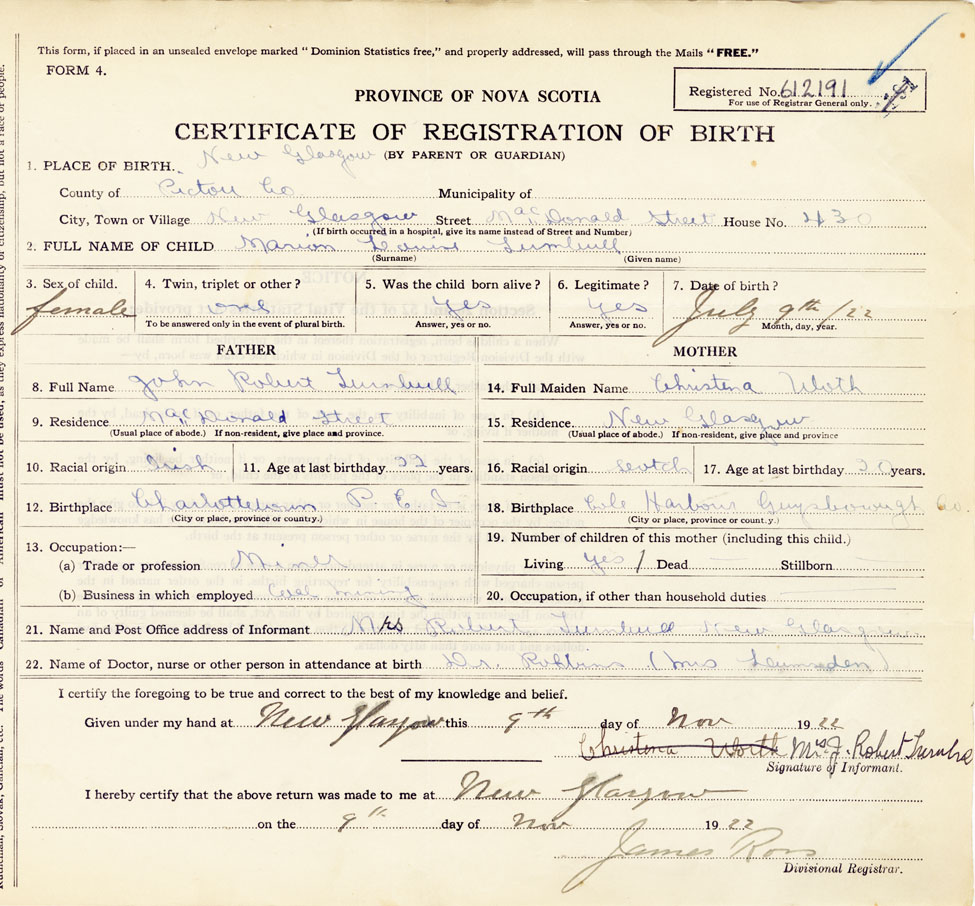 This form, if placed in an unsealed envelope marked "Dominion Statistics free," and properly addressed, will pass through the Mails "FREE."
FORM 4.
Registered No. 612191
For use of Registrar General only.
PROVINCE OF NOVA SCOTIA
CERTIFICATE OF REGISTRATION OF BIRTH
(BY PARENT OR GUARDIAN)
1. PLACE OF BIRTH. New Glasgow
County of Pictou Co Municipality of
City, Town or Village New Glasgow Street MacDonald Street House No. 430
(If birth occurred in a hospital, give its name instead of Street and Number)
2. FULL NAME OF CHILD Marion Louise Turnbull
(Surname) (Given name)
3. Sex of child. 4. Twin, triplet or other? 5. Was the child born alive? 6. Legitimate? 7. Date of birth?
female one Yes Yes July 9th /22
To be answered only in the event of plural birth. Answer, yes or no. Answer, yes or no. Month, day, year.
FATHER MOTHER
8. Full Name John Robert Turnbull 14. Full Maiden Name Christena Worth
9. Residence MacDonald Street 15. Residence. New Glasgow
(Usual place of abode.) If non-resident, give place and province. (Usual place of abode.) If non-resident, give place and province
10. Racial origin Irish 11. Age at last birthday years. 16. Racial origin Scotch 17. Age at last birthday years.
12. Birthplace Charlottetown P. E. I 18. Birthplace Cole Harbour Guysborough Co.
(City or place, province or country.) (City or place, province or country.)
13. Occupation:— 19. Number of children of this mother (including this child.)
(a) Trade or profession Miner Living Yes 1 Dead Stillborn
(b) Business in which employed Coal Mining 20. Occupation, if other than household duties
21. Name and Post Office address of Informant Mrs Robert Turnbull New Glasgow
22. Name of Doctor, nurse or other person in attendance at birth Dr. Robbins (Mrs Lumsden)
I certify the foregoing to be true and correct to the best of my knowledge and belief.
Given under my hand at New Glasgow this 9th day of Nov 1922
Christena Worth Mrs J. Robert Turnbull
Signature of Informant.
I hereby certify that the above return was made to me at New Glasgow
on the 9th day of Nov 1922
James Ross
Divisional Registrar.